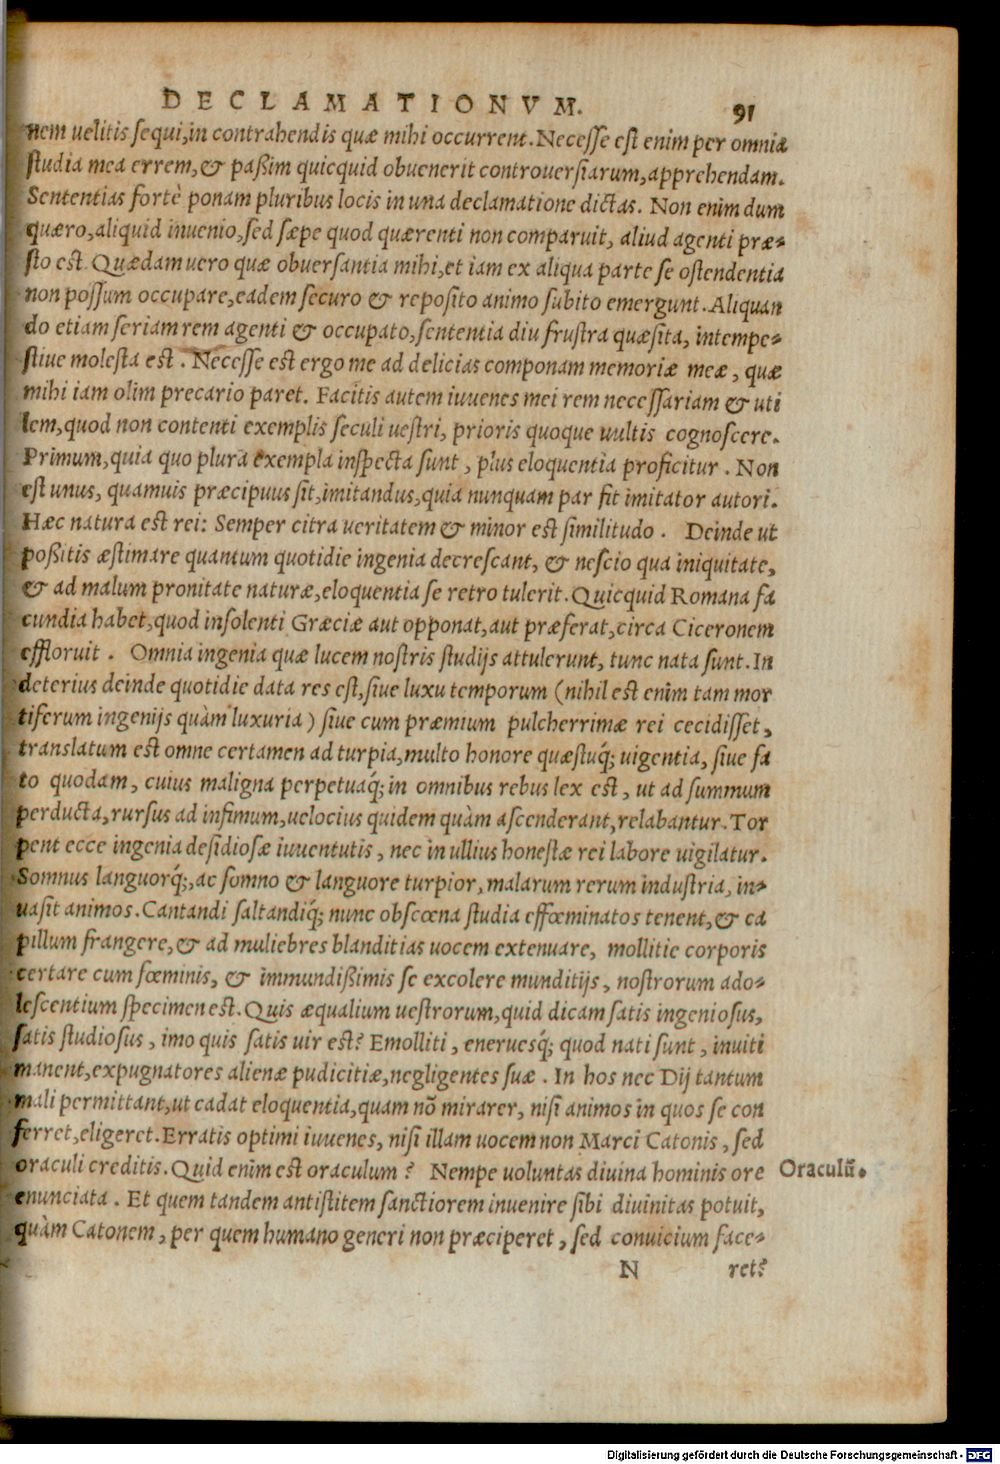 DECLAMATIONVM. 91
nem uelitis sequi, in contrahendis quæ mihi occurrent. Necesse est enim per omnia
studia mea errem, & paßim quicquid obuenerit controuersiarum, apprehendam.
Sententias fortè ponam pluribus locis in una declamatione dictas. Non enim dum
quæro, aliquid inuenio, sed sæpe quod quærenti non comparuit, aliud agenti præ-
sto est. Quædam uero quæ obuersantia mihi, et iam ex aliqua parte se ostendentia
non possum occupare, eadem securo & reposito animo subito emergunt. Aliquan
do etiam seriam rem agenti & occupato, sententia diu frustra quæsita, intempe-
stiue molesta est. Necesse est ergo me ad delicias componam memoriæ meæ, quæ
mihi iam olim precario paret. Facitis autem iuuenes mei rem necessariam & uti
lem, quod non contenti exemplis seculi uestri, prioris quoque uultis cognoscere.
Primum, quia quo plura exempla inspecta sunt, plus eloquentia proficitur. Non
est unus, quamuis præcipuus sit, imitandus, quia nunquam par fit imitator autori.
Hæc natura est rei: Semper citra ueritatem & minor est similitudo. Deinde ut
poßitis æstimare quantum quotidie ingenia decrescant, & nescio qua iniquitate,
& ad malum pronitate naturæ, eloquentia se retro tulerit. Quicquid Romana fa
cundia habet, quod insolenti Græciæ aut opponat, aut præferat, circa Ciceronem
effloruit. Omnia ingenia quæ lucem nostris studijs attulerunt, tunc nata sunt. In
deterius deinde quotidie data res est, siue luxu temporum (nihil est enim tam mor
tiferum ingenijs quàm luxuria) siue cum præmium pulcherrimæ rei cecidisset,
translatum est omne certamen ad turpia, multo honore quæstuq́; uigentia, siue fa
to quodam, cuius maligna perpetuaq́; in omnibus rebus lex est, ut ad summum
perducta, rursus ad infimum, uelocius quidem quàm ascenderant, relabantur. Tor
pent ecce ingenia desidiosæ iuuentutis, nec in ullius honestæ rei labore uigilatur.
Somnus languorq́;, ac somno & languore turpior, malarum rerum industria, in-
uasit animos. Cantandi saltandiq́; nunc obscœna studia effœminatos tenent, & ca
pillum frangere, & ad muliebres blanditias uocem extenuare, mollitie corporis
certare cum fœminis, & immundißimis se excolere munditijs, nostrorum ado-
lescentium specimen est. Quis æqualium uestrorum, quid dicam satis ingeniosus,
satis studiosus, imo quis satis uir est? Emolliti, eneruesq́; quod nati sunt, inuiti
manent, expugnatores alienæ pudicitiæ, negligentes suæ. In hos nec Dij tantum
mali permittant, ut cadat eloquentia, quam nõ mirarer, nisi animos in quos se con
ferret, eligeret. Erratis optimi iuuenes, nisi illam uocem non Marci Catonis, sed
oraculi creditis. Quid enim est oraculum? Nempe uoluntas diuina hominis ore
Oraculũ.
enunciata. Et quem tandem antistitem sanctiorem inuenire sibi diuinitas potuit,
quàm Catonem, per quem humano generi non præciperet, sed conuicium face-
N ret?
Digitalisierung gefördert durch die Deutsche Forschungsgemeinschaft - DFG